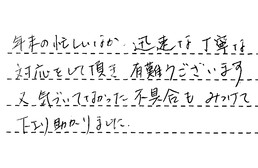 年末の忙しいなか、迅速な丁寧な
対応をして頂き有難うございます
又気づいてなかった不具合もみつけて
下さり助かりました.